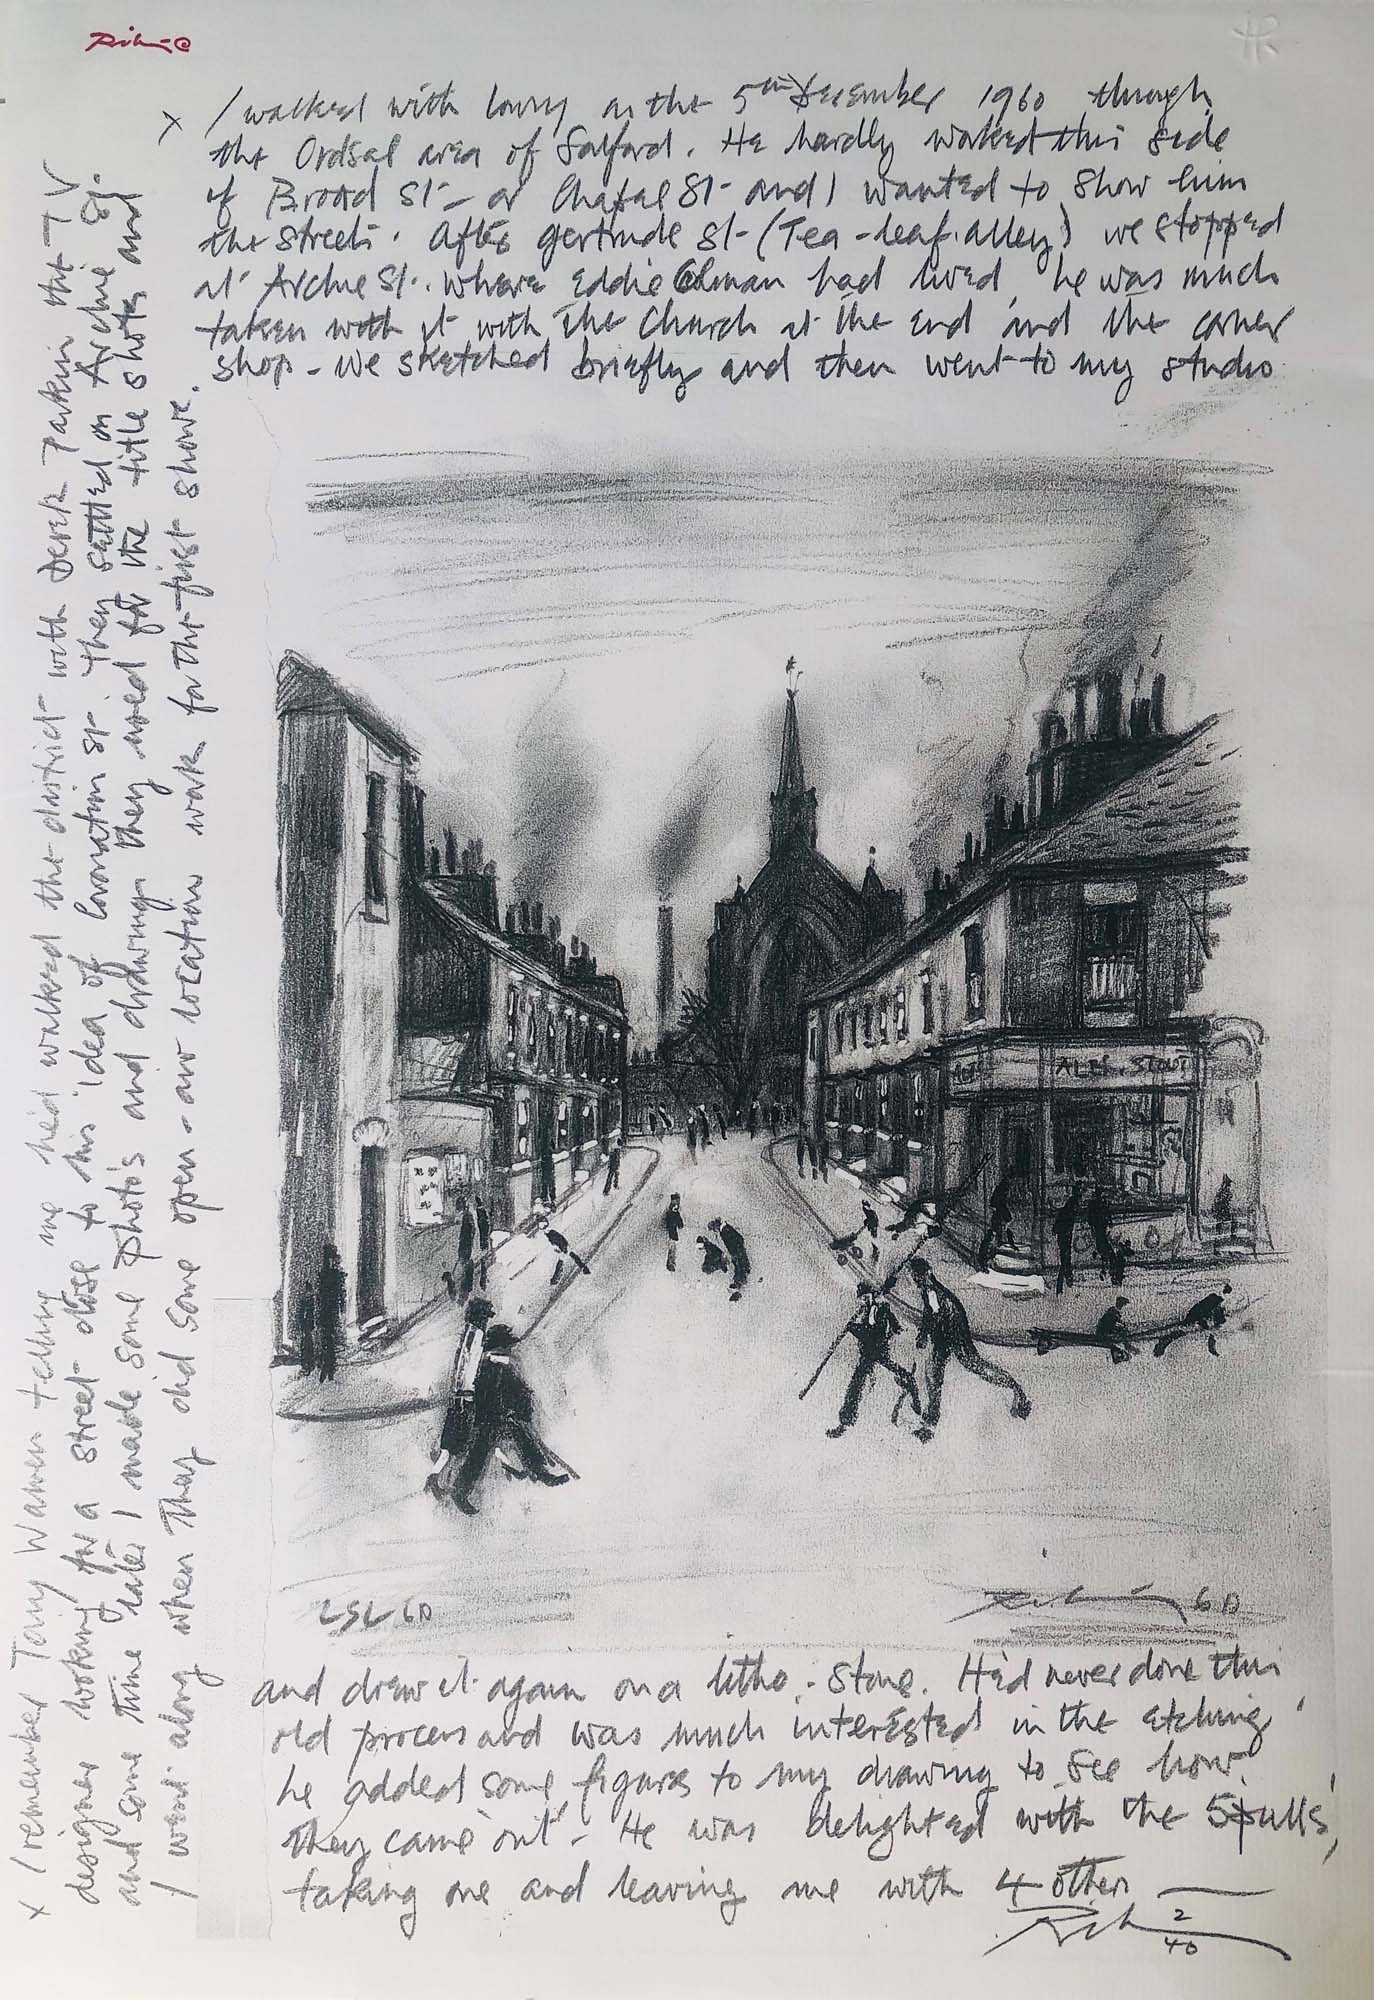 x I walked with Lowry on the 5th December 1960 through
the Ordsal area of Salford. He hardly walked this side
of Broad St - or Chapel St - and I wanted to show him
the streets. After Gertrude St - (Tea-leaf alley) we stopped
at Archie St. where Eddie Colman had lived, he was much
taken with it with the Church at the end and the corner
shop - we sketched briefly and then went to my studio
ALES. STOUT
LSL 60
60
and drew it again on a litho - stone. He'd never done this
old process and was much interested in the etching,
he added some figures to my drawing to see how
they came 'out' - He was delighted with the 5 pulls,
taking one and leaving me with 4 other
2
40
x I remember Tony Warren telling me he'd walked the district with Derek Parkin the TV
designer looking for a street close to his idea of Coronation St. They settled on Archie St.
and some time later I made some photo's and drawings they used for the title shots and
I went along when they did some open-air location work for the first show.